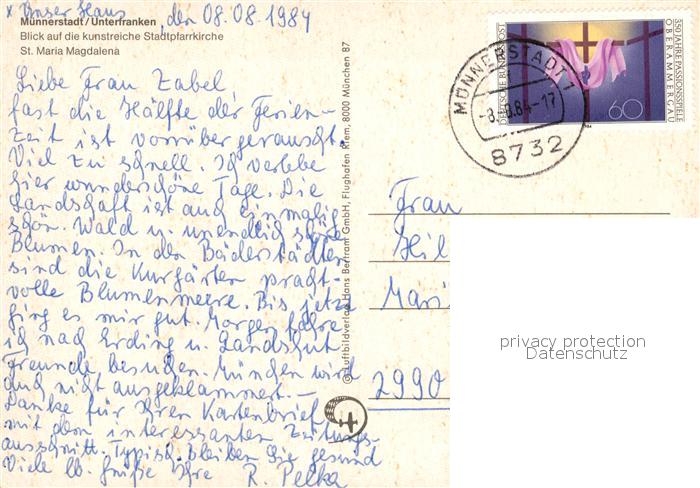 x Unser Haus , den 08.08.1984
Münnerstadt/Unterfranken
Blick auf die kunstreiche Stadtpfarrkirche
St. Maria Magdalena
Liebe Frau Zabel,
fast die Hälfte der Ferien-
zeit ist vorrüber gerauscht.
Viel zu schnell. Ich verlebe
hier wunderschöne Tage. Die
Landschaft ist auch einmalig
schön. Wald u. unendlich schöne
Blumen. In den Bäderstädten
sind die Kurgärten pracht-
volle Blumenmeere. Bis jetzt
ging es mir gut. Morgen fahre
ich nach Erding u. Landshut
Freunde besuchen. München wird
auch nicht ausgeklammert. –
Danke für Ihren Kartenbrief
mit dem interessanten Zeitungs-
ausschnitt. Typisch. Bleiben Sie gesund
Viele lb. Grüße Ihre R. Pelka
© Luftbildverlag Hans Bertram GmbH, Flughafen Riem, 8000 München 87
DEUTSCHE BUNDESPOST
350 JAHRE PASSIONSSPIELE
OBERAMMERGAU
60
MÜNNERSTADT 1
-8.-8.84-17
8732
Frau
Hil
Mari
2990
privacy protection
Datenschutz